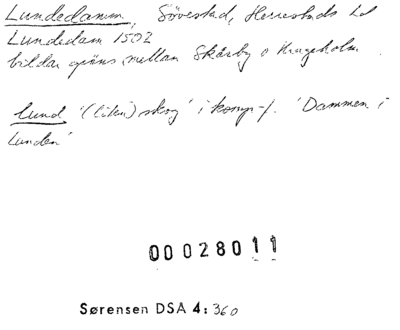 Lundedamm, Sövestad, Herrestads hd
Lundedam 1502
bildar gräns mellan Skårby o Krageholm.
lund '(liten) skog' i komp.-f. 'Dammen i
Lunden'
00028011
Sørensen DSA 4: 360